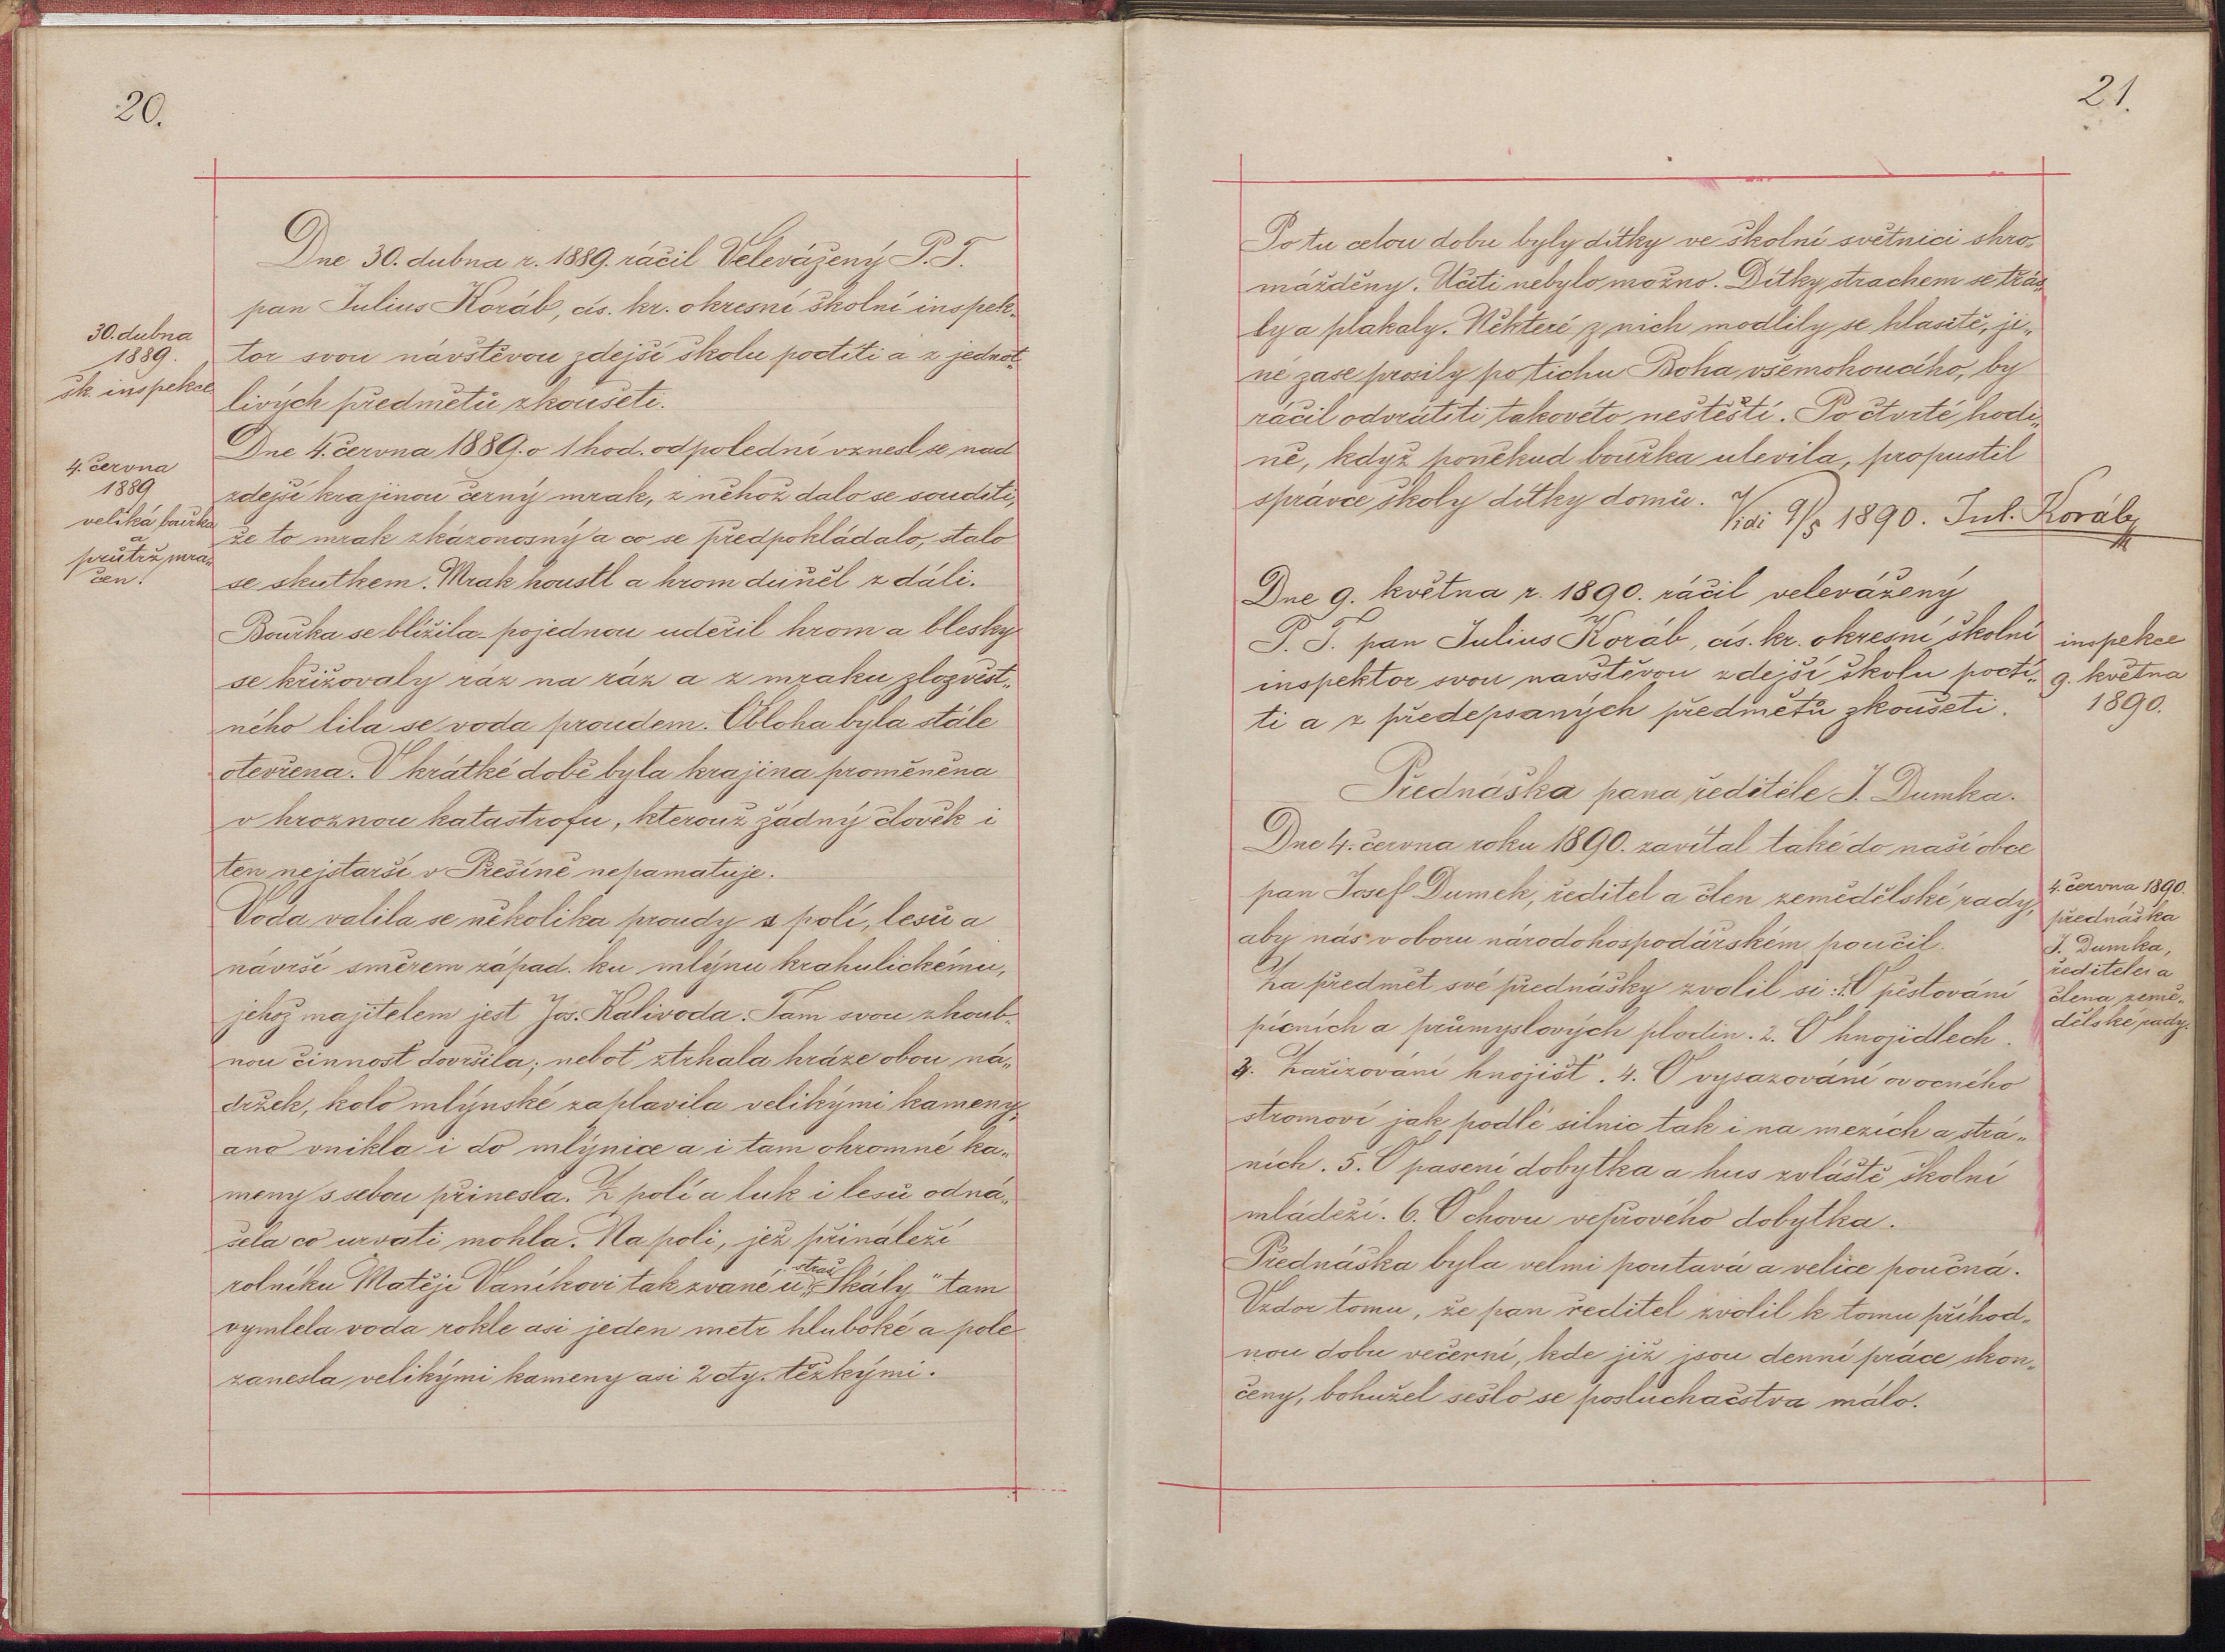 20.
Dne 30. dubna r. 1889. ráčil Velevážený P. T.
pan Julius Koráb, cís. kr. okresní školní inspek-
tor svou návštěvou zdejší školu poctíti a z jednot-
livých předmětů zkoušeti.
30. dubna
1889.
šk. inspekce
Dne 4. června 1889. o 1 hod. odpolední vznesl se nad
zdejší krajinou černý mrak, z něhož dalo se souditi,
že to mrak zkázonosný a co se předpokládalo, stalo
se skutkem. Mrak houstl a hrom duněl z dáli.
4. června
1889
veliká bouřka
a
průtrž mra-
čen.
Bouřka se blížila - pojednou udeřil hrom a blesky
se křižovaly ráz na ráz a z mraku zlozvěst-
ného lila se voda proudem. Obloha byla stále
otevřena. V krátké době byla krajina proměněna
v hroznou katastrofu, kterouž žádný člověk i
ten nejstarší v Přešíně nepamatuje.
Voda valila se několika proudy s polí, lesů a
návrší směrem západ. ku mlýnu krahulickému,
jehož majitelem jest Jos. Kalivoda. Tam svou zhoub-
nou činnost dovršila; neboť ztrhala hráze obou ná-
držek, kolo mlýnské zaplavila velikými kameny,
ano vnikla i do mlýnice a i tam ohromné ka-
meny s sebou přinesla. Z polí a luk i lesů odná-
šela co urvati mohla. Na poli, jež přináleží
rolníku Matěji Vaníkovi tak zvané u „Skály" tam
vymlela voda rokle asi jeden metr hluboké a pole
zanesla velikými kameny asi 2 cty. těžkými.
21.
Po tu celou dobu byly dítky ve školní světnici shro-
mážděny. Učiti nebylo možno. Dítky strachem se třás-
ly a plakaly. Některé z nich modlily se hlasitě, ji-
né zase prosily po tichu Boha všemohoucího, by
ráčil odvrátiti takovéto neštěstí. Po čtvrté hodi-
ně, když poněkud bouřka ulevila, propustil
správce školy dítky domů.
Vidi 9/5 1890. Jul. Koráb
Dne 9. května r. 1890. ráčil velevážený
P. T. pan Julius Koráb, cís. kr. okresní školní
inspektor svou navštěvou zdejší školu poctí-
ti a z předepsaných předmětů zkoušeti.
inspekce
9. května
1890.
Přednáška pana ředitele J. Dumka.
Dne 4. června roku 1890. zavítal také do naší obce
pan Josef Dumek, ředitel a člen zemědělské rady,
aby nás v oboru národohospodářském poučil.
Za předmět své přednášky zvolil si: 1. O pěstování
pícních a průmyslových plodin. 2. O hnojidlech.
4. června 1890.
přednáška
J. Dumka,
ředitele a
člena země-
dělské rady.
3. Zařizování hnojišť. 4. O vysazování ovocného
stromoví jak podlé silnic tak i na mezích a strá-
ních. 5. O pasení dobytka a hus zvláště školní
mládeží. 6. O chovu vepřového dobytka.
Přednáška byla velmi poutavá a velice poučná.
Vzdor tomu, že pan ředitel zvolil k tomu příhod-
nou dobu večerní, kde již jsou denní práce skon-
čeny, bohužel sešlo se posluchačstva málo.